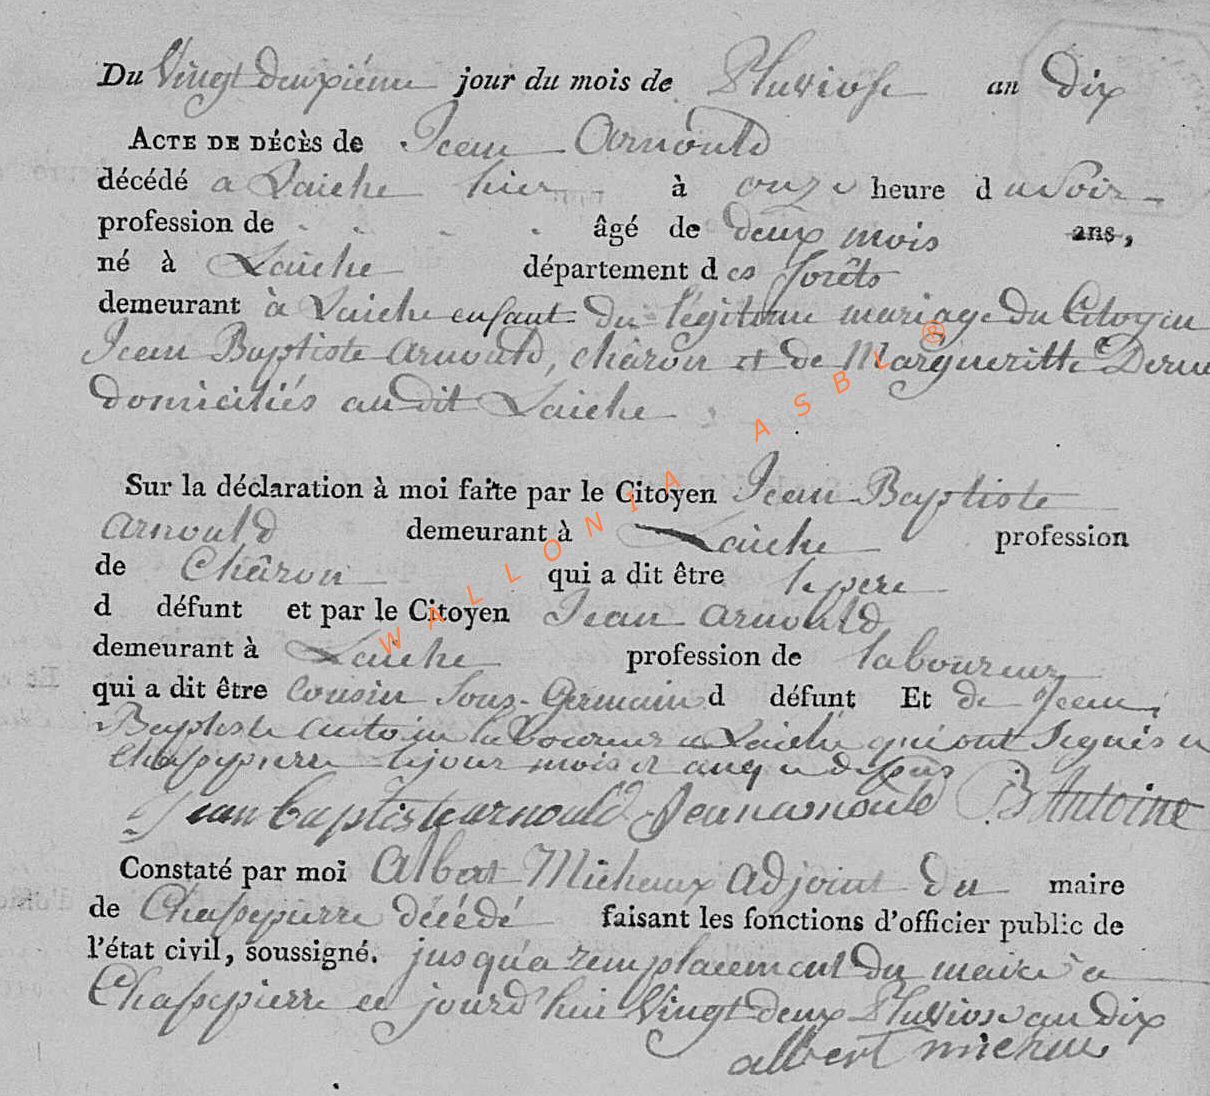 Du Vingt deuxiéme jour du mois de Pluviose an dix
ACTE DE DÉCÈS de Jean Arnould
décédé a Laiche hier à onze heure du soir
profession de . . . . âgé de deux mois ans,
né à Laiche département des forêts
demeurant à Laiche enfant du légitime mariage du Citoyen
Jean Baptiste Arnould, châron et de Margueritte
domiciliés au dit Laiche
Sur la déclaration à moi faite par le Citoyen Jean Baptiste
Arnould demeurant à Laiche profession
de Châron qui a dit être le pere
d défunt et par le Citoyen Jean Arnould
demeurant à Laiche profession de laboureur
qui a dit être Cousin Sous-Germain d défunt Et de Jean
Baptiste Antoine laboureur a Laiche qui ont Signés a
Chassepierre le jour mois et an
Jean baptiste arnould Jean arnould JB Antoine
Constaté par moi Albert Michaux Adjoint du maire
de Chassepierre décédé faisant les fonctions d'officier public de
l'état civil, soussigné. jusqu'a remplacement du maire a
Chassepierre ce jourd'hui Vingt deux Pluviose an dix
albert michaux
WALLONIA ASBL ®